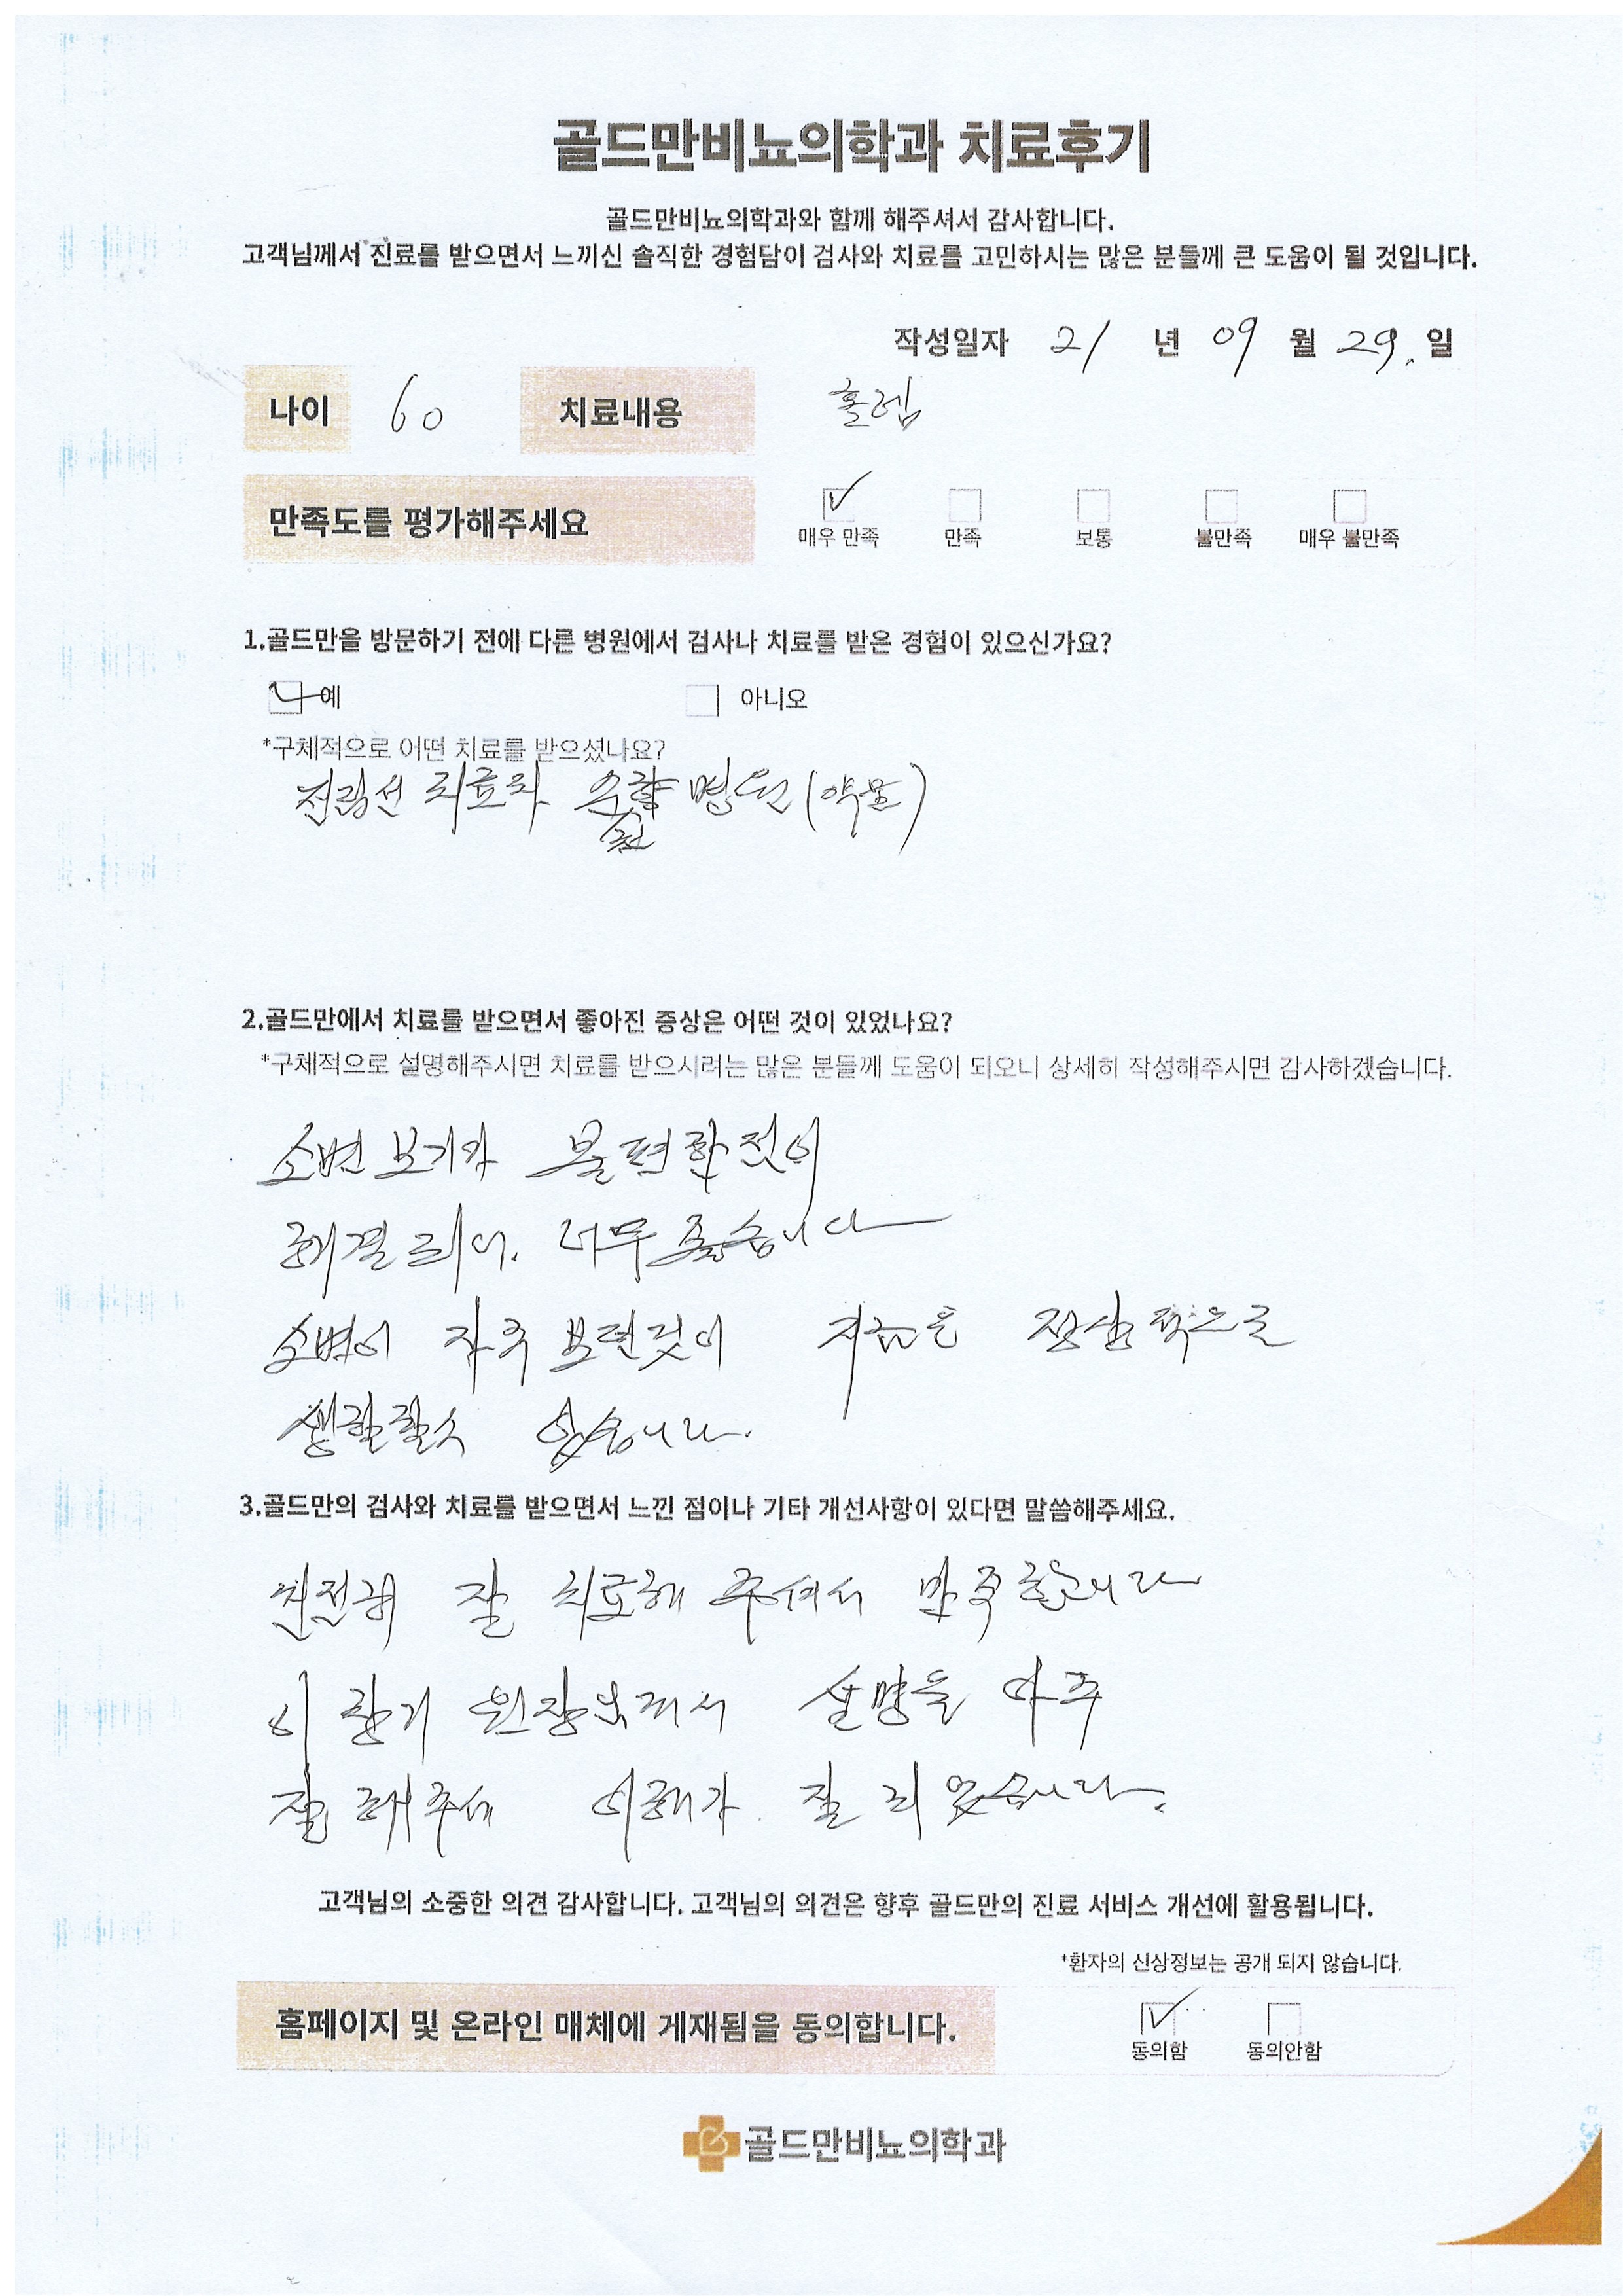 골드만비뇨의학과 치료후기
골드만비뇨의학과와 함께 해주셔서 감사합니다.
고객님께서 진료를 받으면서 느끼신 솔직한 경험담이 검사와 치료를 고민하시는 많은 분들께 큰 도움이 될 것입니다.
작성일자 21 년 09 월 29. 일
나이 60 치료내용 홀렙
만족도를 평가해주세요
매우 만족 만족 보통 불만족 매우 불만족
1.골드만을 방문하기 전에 다른 병원에서 검사나 치료를 받은 경험이 있으신가요?
예 아니오
*구체적으로 어떤 치료를 받으셨나요?
전립선 치료차 병원(약물)
2.골드만에서 치료를 받으면서 좋아진 증상은 어떤 것이 있었나요?
*구체적으로 설명해주시면 치료를 받으시려는 많은 분들께 도움이 되오니 상세히 작성해주시면 감사하겠습니다.
소변 보기가 불편한 점이
해결되니. 너무 좋습니다
소변이 자주 보던것이 지금은 정상적으로
생활할수 있습니다.
3.골드만의 검사와 치료를 받으면서 느낀 점이나 기타 개선사항이 있다면 말씀해주세요.
친절히 잘 치료해 주셔서 만족합니다
이창기 원장님께서 설명을 아주
잘 해주셔 이해가 잘 되었습니다.
고객님의 소중한 의견 감사합니다. 고객님의 의견은 향후 골드만의 진료 서비스 개선에 활용됩니다.
*환자의 신상정보는 공개 되지 않습니다.
홈페이지 및 온라인 매체에 게재됨을 동의합니다.
동의함 동의안함
골드만비뇨의학과